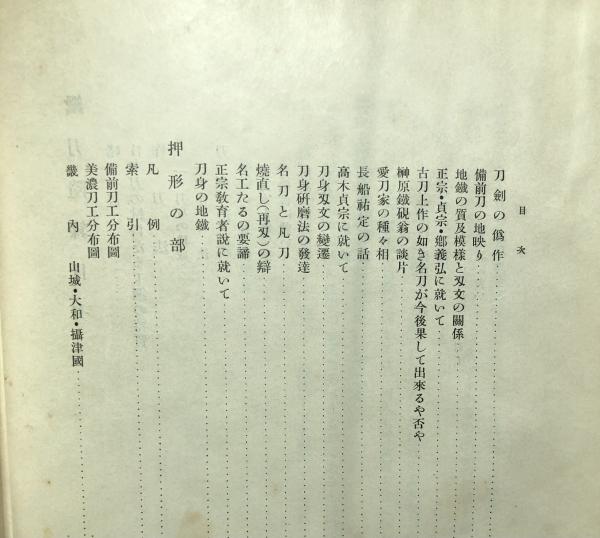 目次
刀劍の僞作
備前刀の地映り
地鐵の質及模樣と刄文の關係
正宗・貞宗・鄕義弘に就いて
古刀上作の如き名刀が今後果して出來るや否や
榊原鐵硯翁の談片
愛刀家の種々相
長船祐定の話
高木貞宗に就いて
刀身刄文の變遷
刀身硏磨法の發達
名刀と凡刀
燒直し(再刄)の辯
名工たるの要諦
正宗敎育者說に就いて
刀身の地鐵
押形の部
凡例
索引
備前刀工分布圖
美濃刀工分布圖
畿內 山城・大和・攝津國